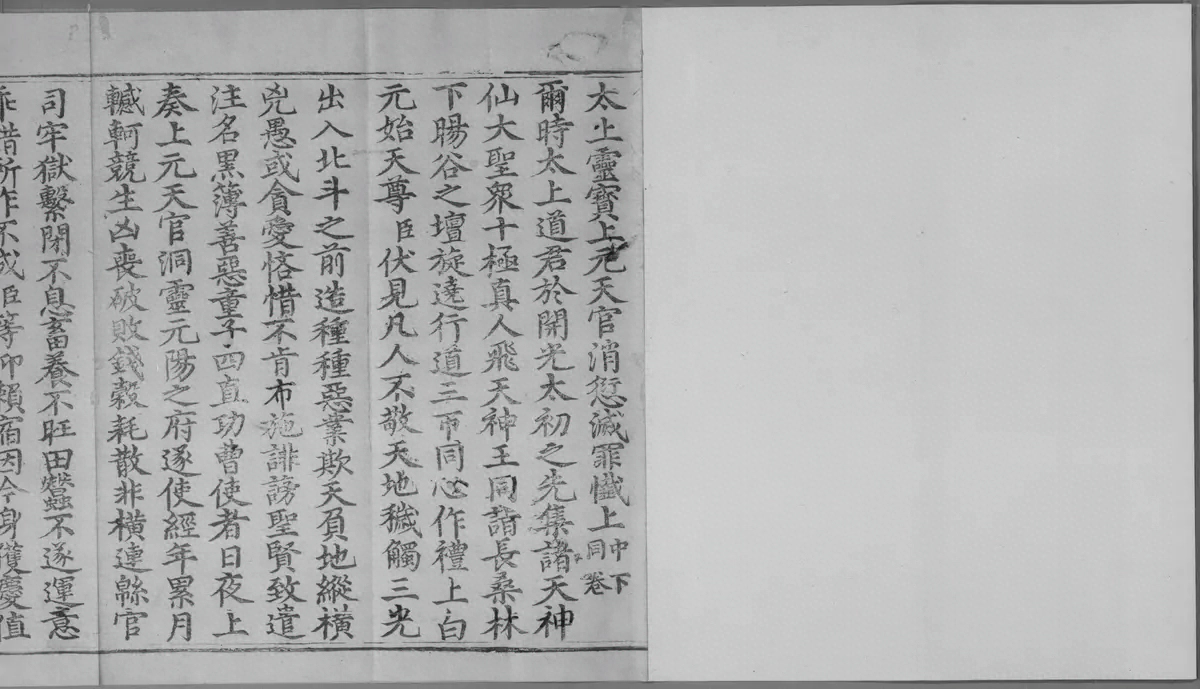 太上靈寶上元天官消愆滅罪懺上中下同卷
爾時太上道君於開光太初之先集諸天神
仙大聖衆十極真人飛天神王同詣長桑林
下暘谷之壇旋遶行道三帀同心作禮上白
元始天尊臣伏見凡人不敬天地穢觸三光
出入北斗之前造種種惡業欺天負地縱橫
兇愚或貪愛悋惜不肯布施誹謗聖賢致遣
注名黒簿善惡童子四直功曹使者日夜上
奏上元天官洞靈元陽之府遂使經年累月
轗軻競生凶喪破敗錢穀耗散非橫連緜官
司牢獄繫閉不息畜養不旺田蠶不遂運意
乖惜所作不成臣等仰賴宿因今身獲慶值